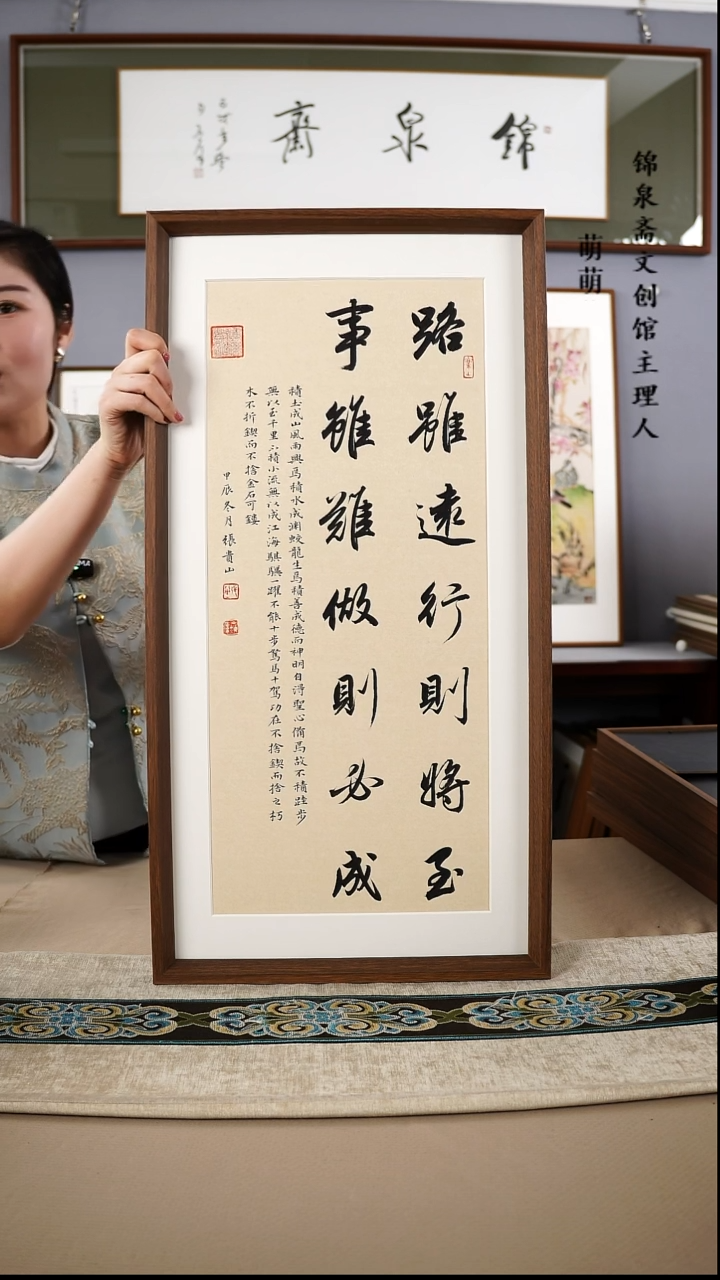 錦泉齋
锦泉斋文创馆主理人
萌萌
路雖遠行則將至
事雖難做則必成
積土成山風雨興焉積水成淵蛟龍生焉積善成德而神明自得聖心備焉故不積跬步
無以至千里不積小流無以成江海騏驥一躍不能十步駑馬十駕功在不捨鍥而捨之朽
木不折鍥而不捨金石可鏤
甲辰冬月張貴山